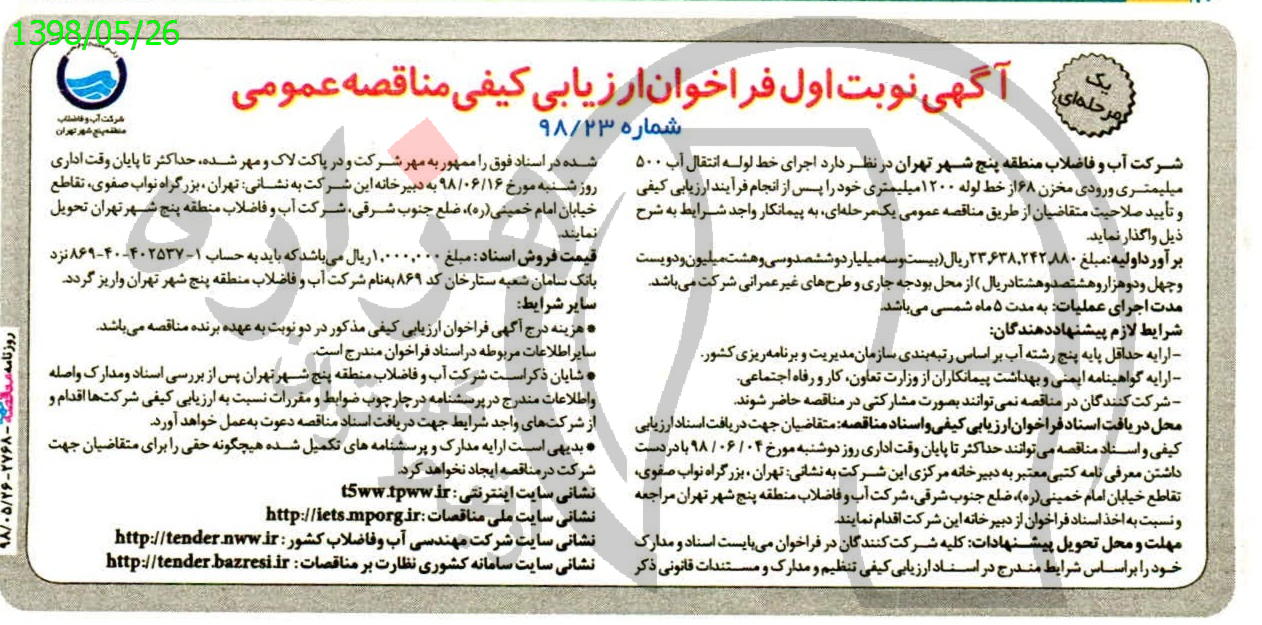 1398/05/26
یک
مرحله‌ای
آگهی نوبت اول فراخوان ارزیابی کیفی مناقصه عمومی
شماره ۹۸/۲۳
شرکت آب و فاضلاب
منطقه پنج شهر تهران
شــرکت آب و فاضلاب منطقه پنج شــهر تهران در نظــر دارد اجرای خط لولــه انتقال آب ۵۰۰
میلیمتــری ورودی مخزن ۶۸ از خط لوله ۱۲۰۰ میلیمتری خود را پــس از انجام فرآیند ارزیابی کیفی
و تأیید صلاحیت متقاضیان از طریق مناقصه عمومی یک‌مرحله‌ای، به پیمانکار واجد شــرایط به شرح
ذیل واگذار نماید.
برآورد اولیه: مبلغ ۲۳,۶۳۸,۲۴۲,۸۸۰ ریال (بیست‌وسه‌میلیارد و ششصدوسی‌وهشت‌میلیون‌و‌دویست
وچهل ودوهزاروهشتصدوهشتادریال) از محل بودجه جاری و طرح‌های غیرعمرانی شرکت می‌باشد.
مدت اجرای عملیات: به مدت ۵ ماه شمسی می‌باشد.
شرایط لازم پیشنهاددهندگان:
-ارایه حداقل پایه پنج رشته آب بر اساس رتبه‌بندی سازمان مدیریت و برنامه‌ریزی کشور.
-ارایه گواهینامه ایمنی و بهداشت پیمانکاران از وزارت تعاون، کار و رفاه اجتماعی.
-شرکت کنندگان در مناقصه نمی‌توانند بصورت مشارکتی در مناقصه حاضر شوند.
محل دریافت اسناد فراخوان ارزیابی کیفی و اسناد مناقصه: متقاضیان جهت دریافت اسناد ارزیابی
کیفی و اسـناد مناقصه می‌توانند حداکثر تا پایان وقت اداری روز دوشنبه مورخ ۹۸/۰۶/۰۴ با در دست
داشتن معرفی نامه کتبی معتبر به دبیرخانه مرکزی این شــرکت به نشانی: تهران، بزرگراه نواب صفوی،
تقاطع خیابان امام خمینی(ره)، ضلع جنوب شرقی، شرکت آب و فاضلاب منطقه پنج شهر تهران مراجعه
و نسبت به اخذ اسناد فراخوان از دبیرخانه این شرکت اقدام نمایند.
مهلت و محل تحویل پیشــنهادات: کلیه شــرکت کنندگان در فراخوان می‌بایست اسناد و مدارک
خــود را براســاس شرایط منــدرج در اســناد ارزیابی کیفی تنظیم و مدارک و مســتندات قانونی ذکر
شــده در اسناد فوق را ممهور به مهر شــرکت و در پاکت لاک و مهر شده، حداکثر تا پایان وقت اداری
روز شــنبه مورخ ۹۸/۰۶/۱۶ به دبیرخانه این شــرکت به نشــانی: تهران، بزرگراه نواب صفوی، تقاطع
خیابان امام خمینی(ره)، ضلع جنوب شــرقی، شــرکت آب و فاضلاب منطقه پنج شــهر تهران تحویل
نمایند.
قیمت فروش اسناد: مبلغ ۱,۰۰۰,۰۰۰ ریال می‌باشد که باید به حساب ۱-۴۰۲۵۳۷-۴۰-۸۶۹ نزد
بانک سامان شعبه ستارخان کد ۸۶۹ به‌نام شرکت آب و فاضلاب منطقه پنج شهر تهران واریز گردد.
سایر شرایط:
● هزینه درج آگهی فراخوان ارزیابی کیفی مذکور در دو نوبت به عهده برنده مناقصه می‌باشد.
سایر اطلاعات مربوطه در اسناد فراخوان مندرج است.
● شایان ذکر اسـت شرکت آب و فاضلاب منطقه پنج شــهر تهران پس از بررسی اسناد ومدارک واصله
واطلاعات مندرج در پرسشنامه در چارچوب ضوابط و مقررات نسبت به ارزیابی کیفی شرکت‌ها اقدام و
از شرکت‌های واجد شرایط جهت دریافت اسناد مناقصه دعوت به‌عمل خواهد آورد.
● بدیهی اسـت ارایه مدارک و پرسشنامه های تکمیل شــده هیچگونه حقی را برای متقاضیان جهت
شرکت در مناقصه ایجاد نخواهد کرد.
نشانی سایت اینترنتی: t5ww.tpww.ir
نشانی سایت ملی مناقصات: http://iets.mporg.ir
نشانی سایت شرکت مهندسی آب وفاضلاب کشور: http://tender.nww.ir
نشانی سایت سامانه کشوری نظارت بر مناقصات: http://tender.bazresi.ir
روزنامه مناقصه ۲۷۶۸-۹۸/۰۵/۲۶
هزاره